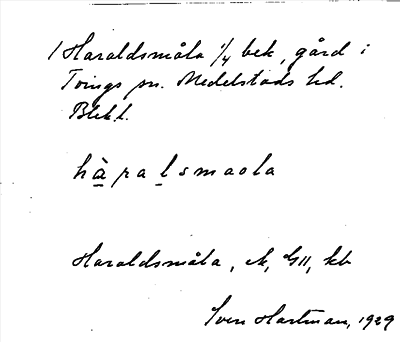 1 Haraldsmåla 1/4 bek, gård i
Tvings sn. Medelstads hd.
Blek.l.
hàralsmaola
Haraldsmåla, ek, GII, kb
Sven Hartman, 1929